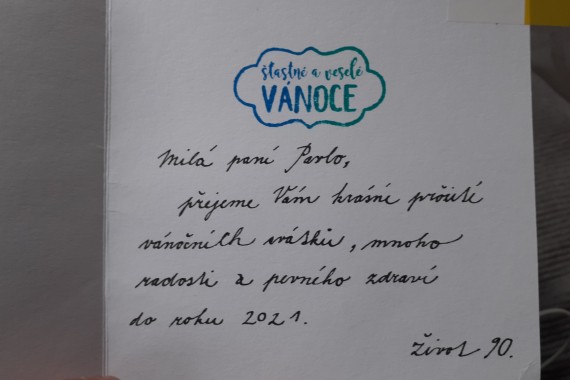 šťastné a veselé
VÁNOCE
Milá paní Pavlo,
přejeme Vám krásné prožití
vánočních svátků, mnoho
radosti a pevného zdraví
do roku 2021.
Život 90.